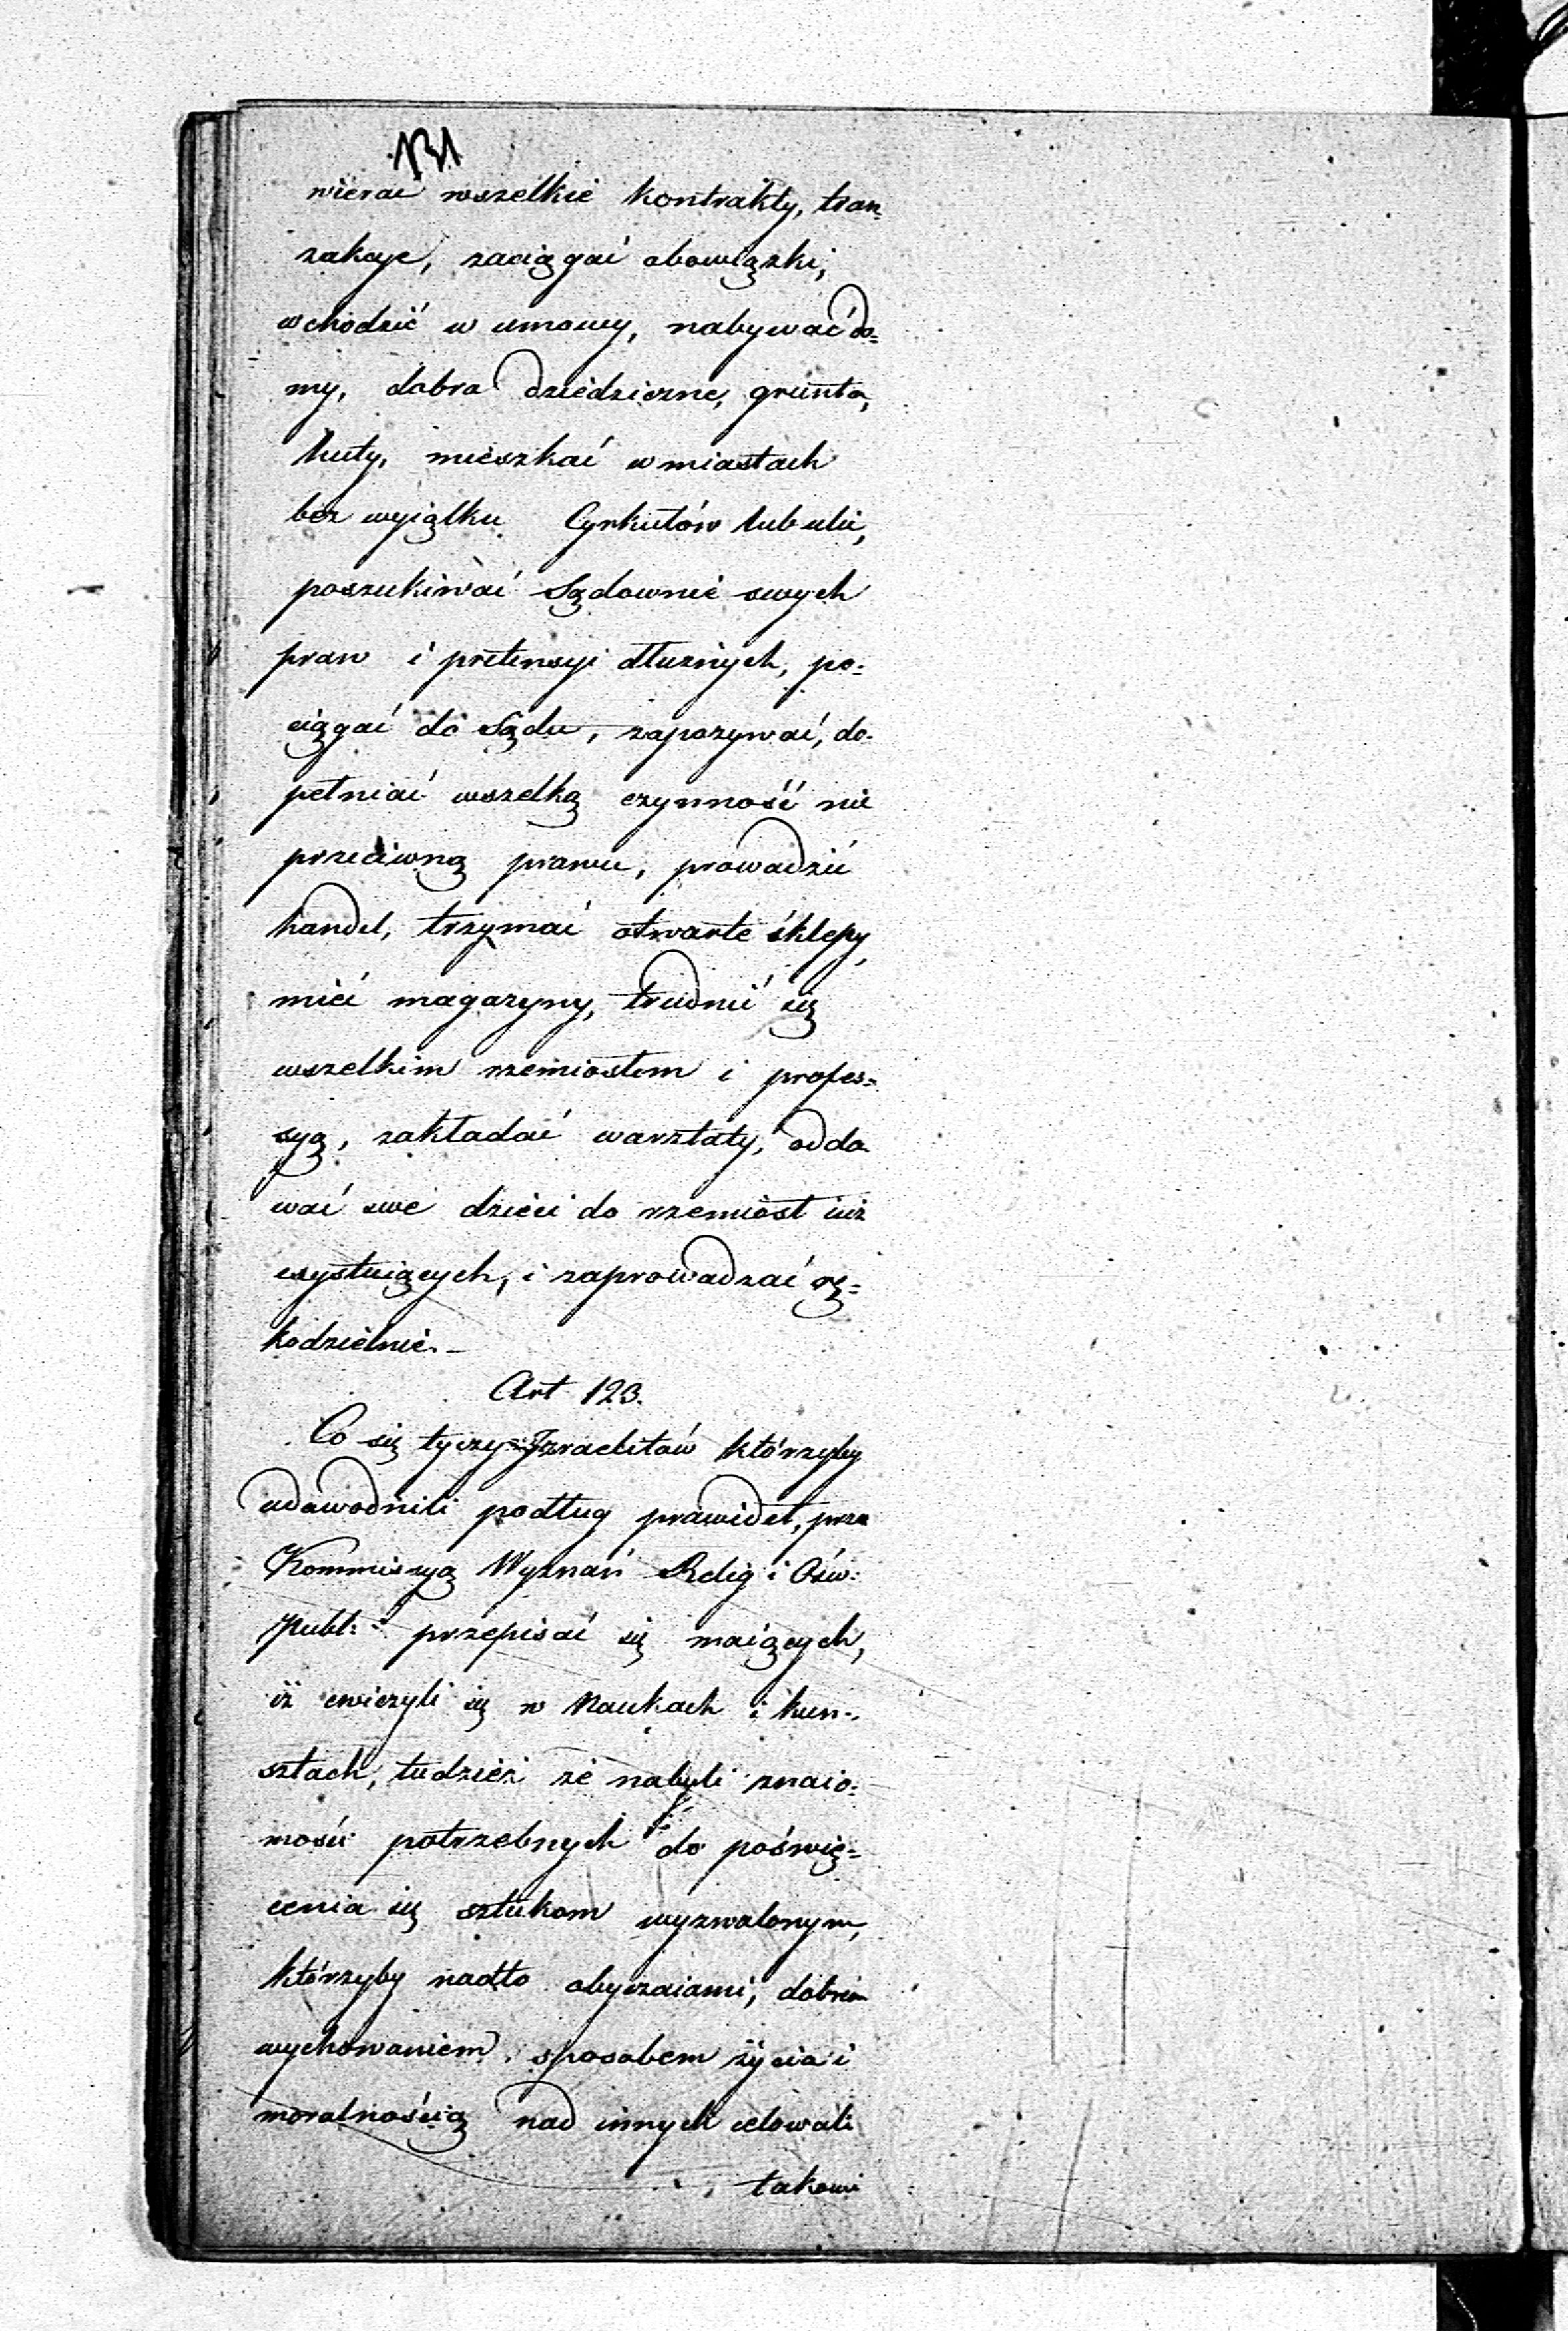 131
wierać wszelkie kontrakty, tran=
zakcye, zaciągać obowiązki,
wchodzić w umowy, nabywać do=
my, dobra dziedziczne, grunta,
huty, mieszkać w miastach
bez wyiątku Cyrkułów lub ulic,
poszukiwać Sądownie swych
praw i pretensyi dłużnych, po=
ciągać do Sądu, zapozywać, do-
pełniać wszelką czynność nie
przeciwną prawu, prowadzić
handel, trzymać otwarte sklepy,
mieć magazyny, trudnić się
wszelkim rzemiosłem i profes=
syą, zakładać warsztaty, odda
wać swe dzieci do rzemiosł iuż
exystuiących, i zaprowadzać rę=
kodzielnie.—
Art 123.
Co się tyczy Izraelitów którzyby
udowodnili podług prawideł, prze
Kommissyą Wyznań Relig i Ośw:
Publ: przepisać się maiących,
iż cwiczyli się w Naukach i kun-
sztach, tudzież że nabyli znaio=
mości potrzebnych do poświę=
cenia się sztukom wyzwolonym,
którzyby nadto obyczaiami, dobrem
wychowaniem, sposobem życia i
moralnością nad innych celowali
takowi